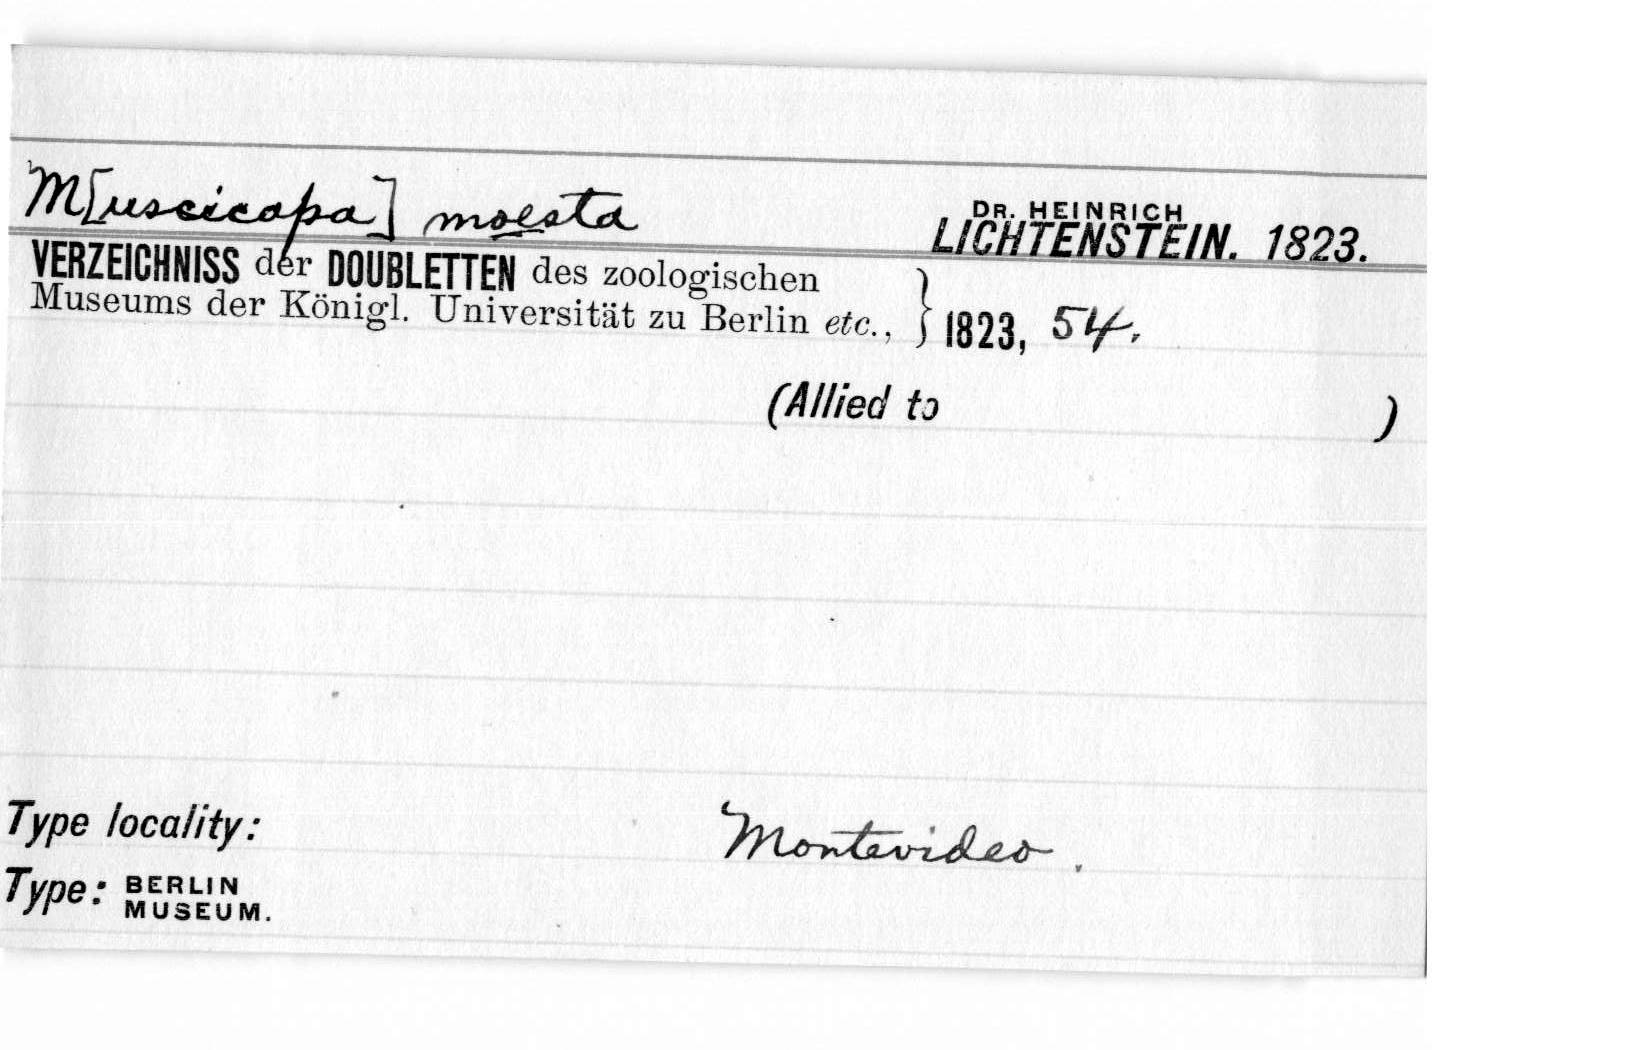 M[uscicapa] moesta
DR. HEINRICH
LICHTENSTEIN. 1823.
VERZEICHNISS der DOUBLETTEN des zoologischen
Museums der Königl. Universität zu Berlin etc., } 1823, 54.
(Allied to )
Type locality: Montevideo.
Type: BERLIN
MUSEUM.